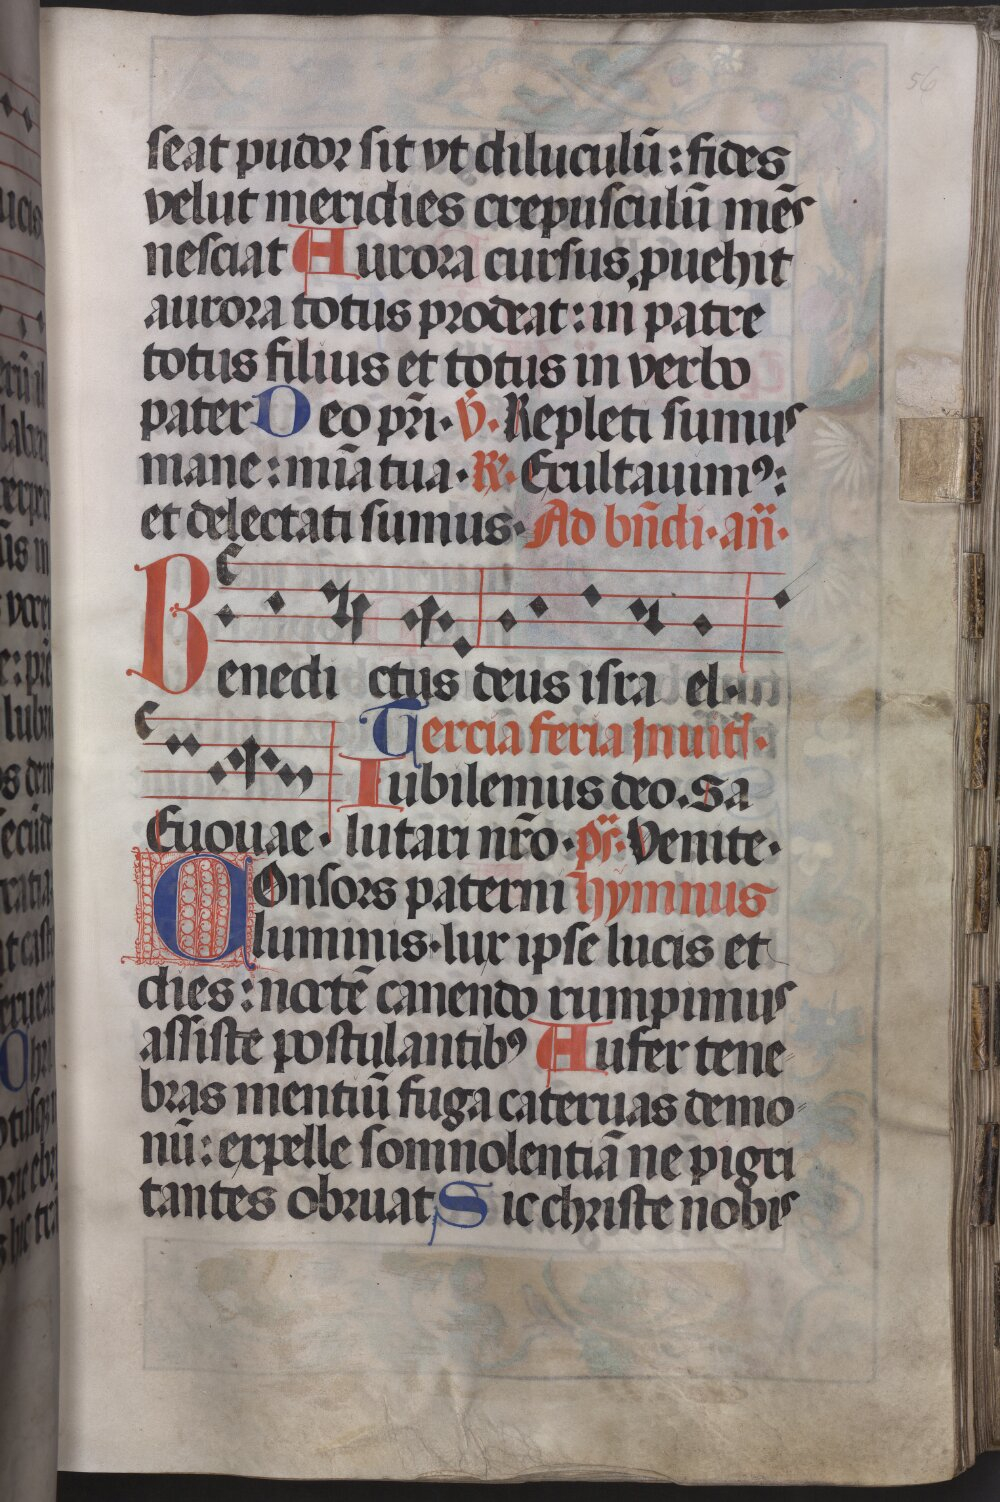 56
seat pudor sit vt diluculũ : fides
velut meridies crepusculũ mẽs
nesciat Aurora cursus puehit
aurora totus prodeat : in patre
totus filius et totus in verbo
pater Deo pr̃i · V̓. Repleti sumus
mane : mĩa tua · R̃. Exultauimꝰ :
et delectati sumus · Ad bñdi · añ ·
Benedi ctus deus isra el ·
Tercia feria Inuitͥ ·
Iubilemus deo . Sa
Euouae · lutari nr̃o · ps̃ · Venite ·
COnsors paterni hymnus
luminis · lux ipse lucis et
dies : noctẽ canendo rumpimus
assiste postulantibꝰ Aufer tene
bras mentiũ fuga cateruas demo
nũ : expelle somnolentiã ne pigri
tantes obruat Sic christe nobis